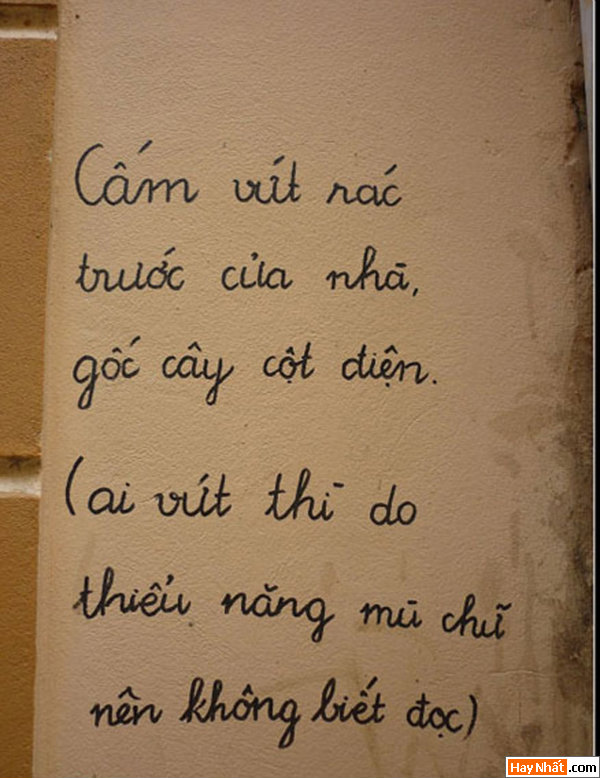 Cấm vứt rác
trước cửa nhà,
gốc cây cột điện.
(ai vứt thì do
thiểu năng mù chữ
nên không biết đọc)
Hay Nhất .com